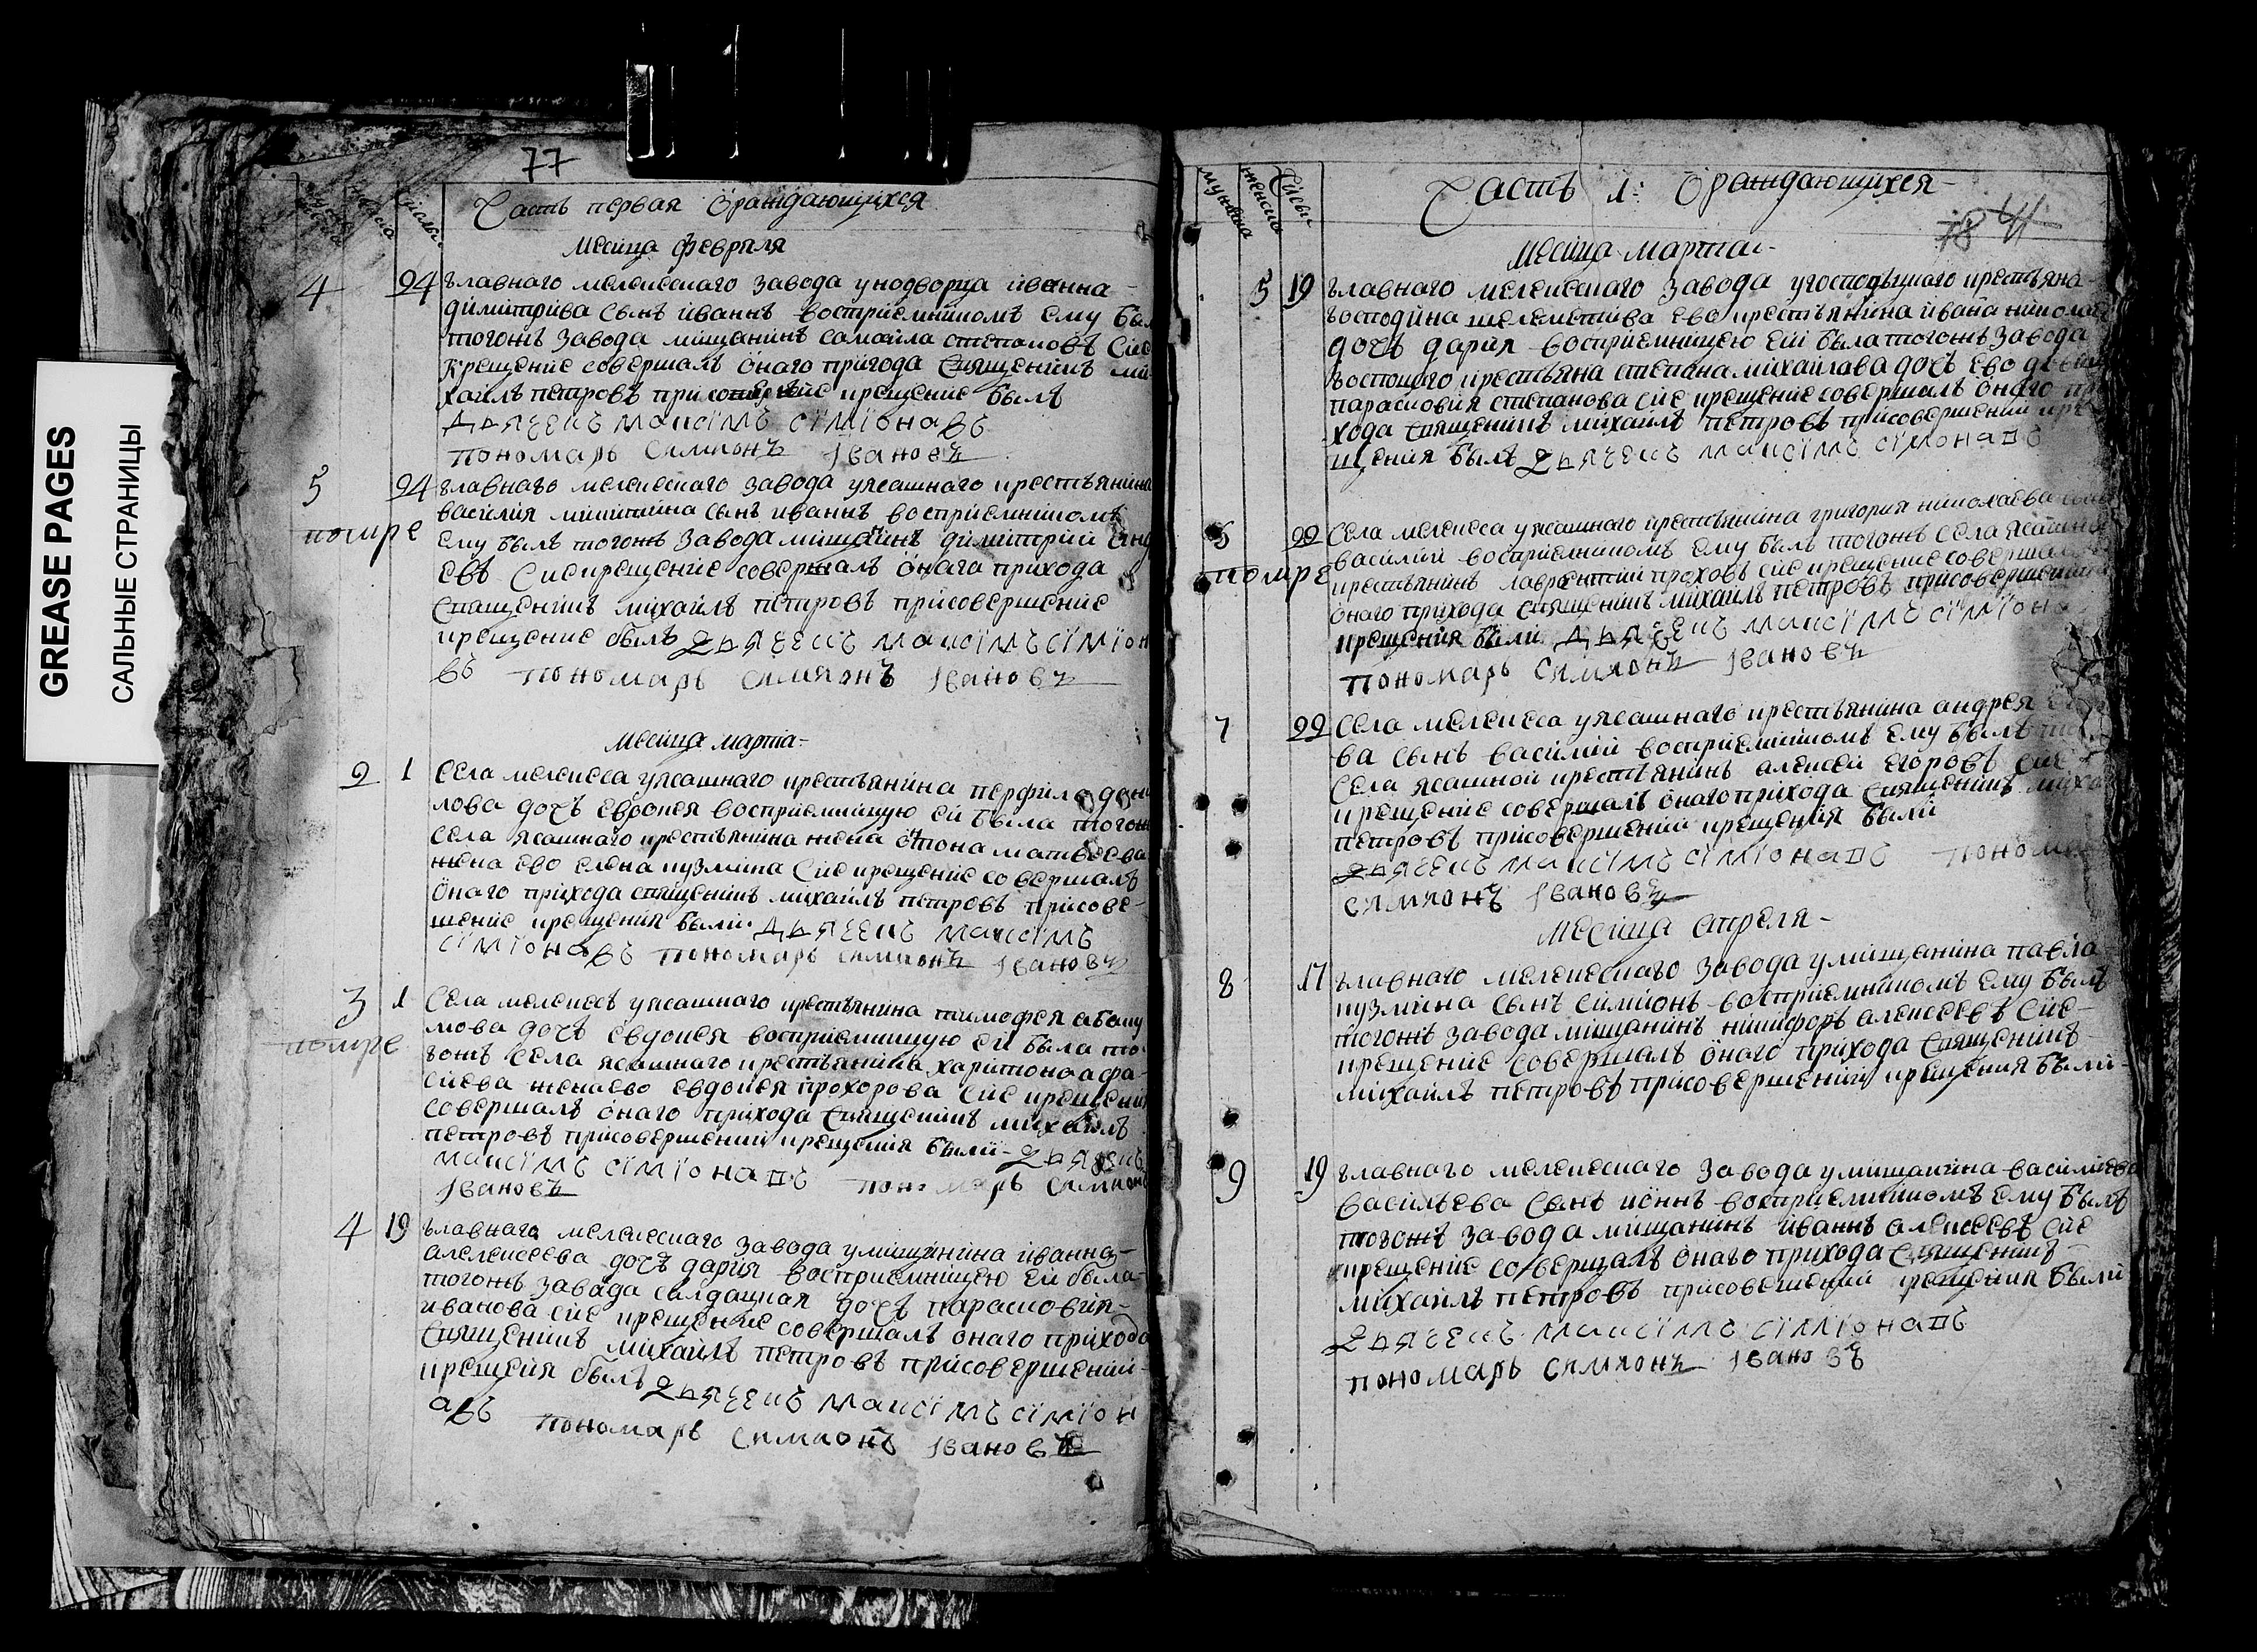 GREASE PAGES
САЛЬНЫЕ СТРАНИЦЫ
77
Часть первая ѽраждающихся
месяца февраля
4 24 главнаго мелекесскаго завода унодворца иванна
димитрива сынъ иванъ восприемникомъ ему был
тогожъ завода мищанинъ самаила степановъ сие
крещение совершалъ онаго прихода священникъ ми
хаилъ петровъ при крещение былъ
дьячекъ максїмъ сїмїонавъ
пономарь симионъ Iвановъ
5 24 главнаго мелекескаго завода уясашнаго крестьянина
василия микитина сынъ иванъ восприемникомъ
помре
ему былъ тогожъ завода мищанинъ димитрий
евъ Сие крещение совершалъ онаго прихода
священникъ михаилъ петровъ присовершение
крещение былъ дьячекъ максїмъ сїмїон
въ пономарь симионъ Iвановъ
месяца марта
2 1 Села мелекесса уясашнаго крестьянина перфила дани
лова дочь евдокея восприемницую ей была тогожъ
села ясашнаго крестьянина жена матвеева
жена ево елена кузмина Сие крещение совершалъ
онаго прихода священникъ михаилъ петровъ присове
шение крещения были дьячекъ максїмъ
сїмїонавъ пономарь симионъ Iвановъ
3 1 Села мелекесъ уясашнаго крестьянина тимофея абаку
мова дочь евдокея восприемницую ей была то
помре
гожъ села ясашнаго крестьянина харитона афа
сиева женаево евдокея прохорова Сие крещение
совершалъ онаго прихода священникъ михаилъ
петровъ присовершении крещения были дьячекъ
максїмъ сїмїонавъ пономарь симион
Iвановъ
4 19 главнаго мелекескаго завода умищинина иванна
алекисеева дочь дария восприемницею ей была
тогожъ завода салдацкая дочь парасковия
иванова сие крещение совершалъ онаго прихода
священникъ михаилъ петровъ присовершении
крещения былъ дьячекъ максїмъ сїмїон
авъ пономарь симионъ Iвановъ
мужска женско Числы
Часть 1: ѽраждающихся
78 41
месяца марта
5 19 главнаго мелекесскаго завода угосподскаго крестьяна
господина шелеметива ево крестьянина ивана николае
дочь дария восприемницею ей была тогожъ завода
госпоцкого крестьяна степана михаилава дочь ево
парасковия степанова сие крещение совершалъ онаго при
хода священникъ михаилъ петровъ присовершении кре
щения былъ дьячекъ максїмъ сїмїонавъ
6 22 Села мелекесса уясашнаго крестьянина григория николаева
василий восприемникомъ ему былъ тогожъ села ясашно
помре
крестьянинъ лаврентий проховъ сие крещение совершал
онаго прихода священникъ михаилъ петровъ присовершении
крещения были дьячекъ максїмъ сїмїона
пономарь симионъ Iвановъ
7 22 Села мелекесса уясашнаго крестьянина андрея
ва сынъ василий восприемникомъ ему былъ
села ясашной крестьянинъ алексей егоровъ сие
крещение совершалъ онаго прихода священникъ миха
петровъ присовершений крещения были
дьячекъ максїмъ сїмїонавъ поном
симионъ Iвановъ
Месяца апреля
8 17 главнаго мелекескаго завода умищанина павла
кузмина сынъ симионъ восприемникомъ ему былъ
тогожъ завода мищанинъ никифоръ алексеевъ Сие
крещение совершалъ онаго прихода священникъ
михаилъ петровъ присовершений крещения были
9 19 главнаго мелекесскаго завода умищанина василиева
васильева сынъ ионнъ восприемникомъ ему былъ
тогожъ завода мищанинъ иваннъ алексеевъ сие
крещение совершалъ онаго прихода священникъ
михаилъ петровъ присовешений крещения были
дьячекъ максїмъ сїмїонавъ
пономарь симионъ Iвановъ